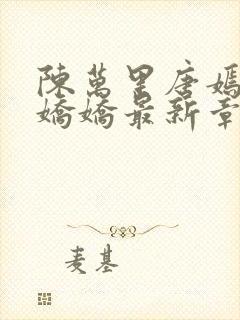 陳萬里唐嫣
嬌嬌最新章
麦基